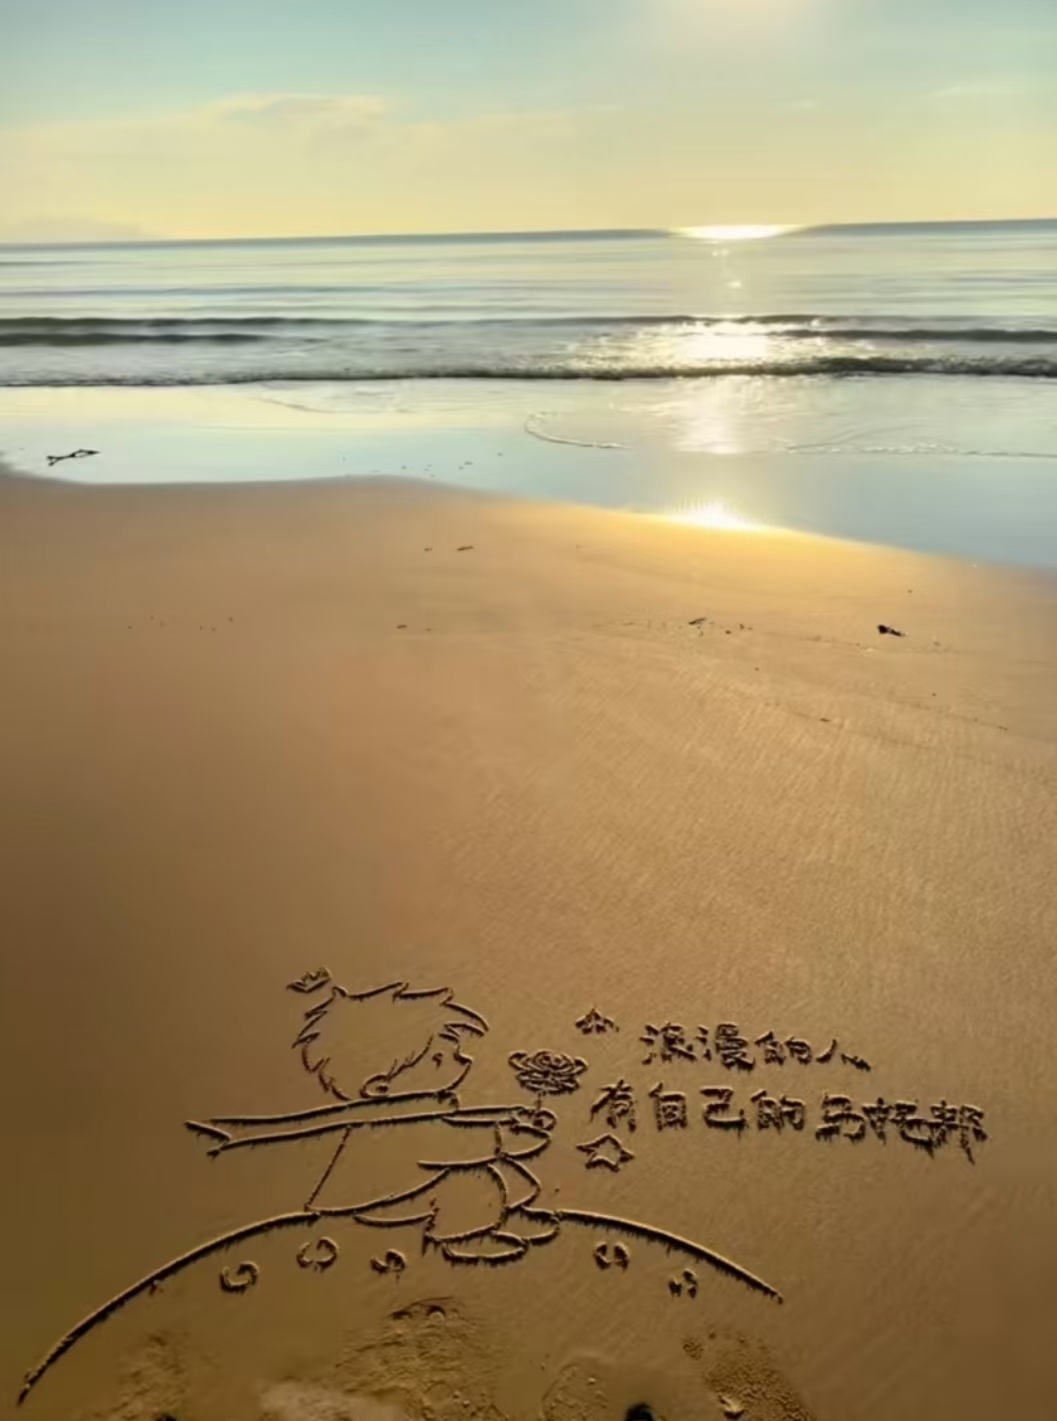 浪漫的人
有自己的马托邦